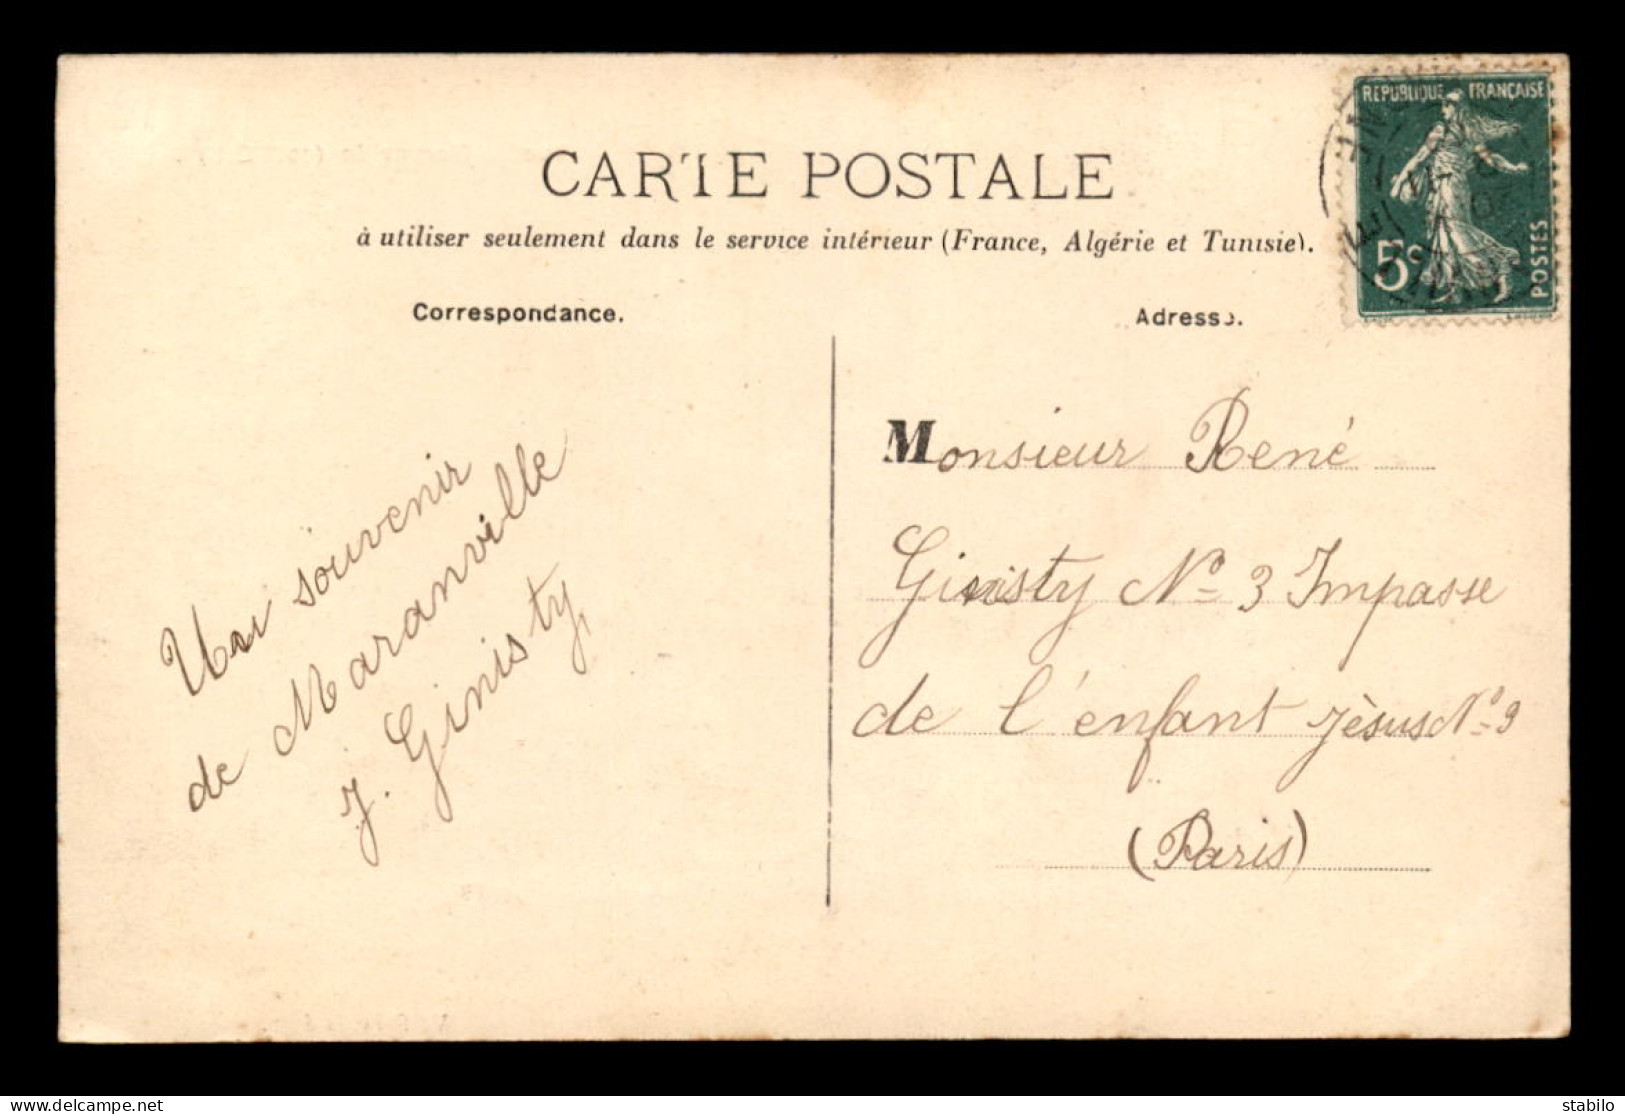 CARTE POSTALE
à utiliser seulement dans le service intérieur (France, Algérie et Tunisie).
Correspondance.
Adresse.
REPUBLIQUE FRANÇAISE
5c
POSTES
Un souvenir
de Maranville
J. Ginisty
Monsieur René
Ginisty No 3 Impasse
de l'enfant Jèsus No 3
(Paris)
www.delcampe.net
stabilo